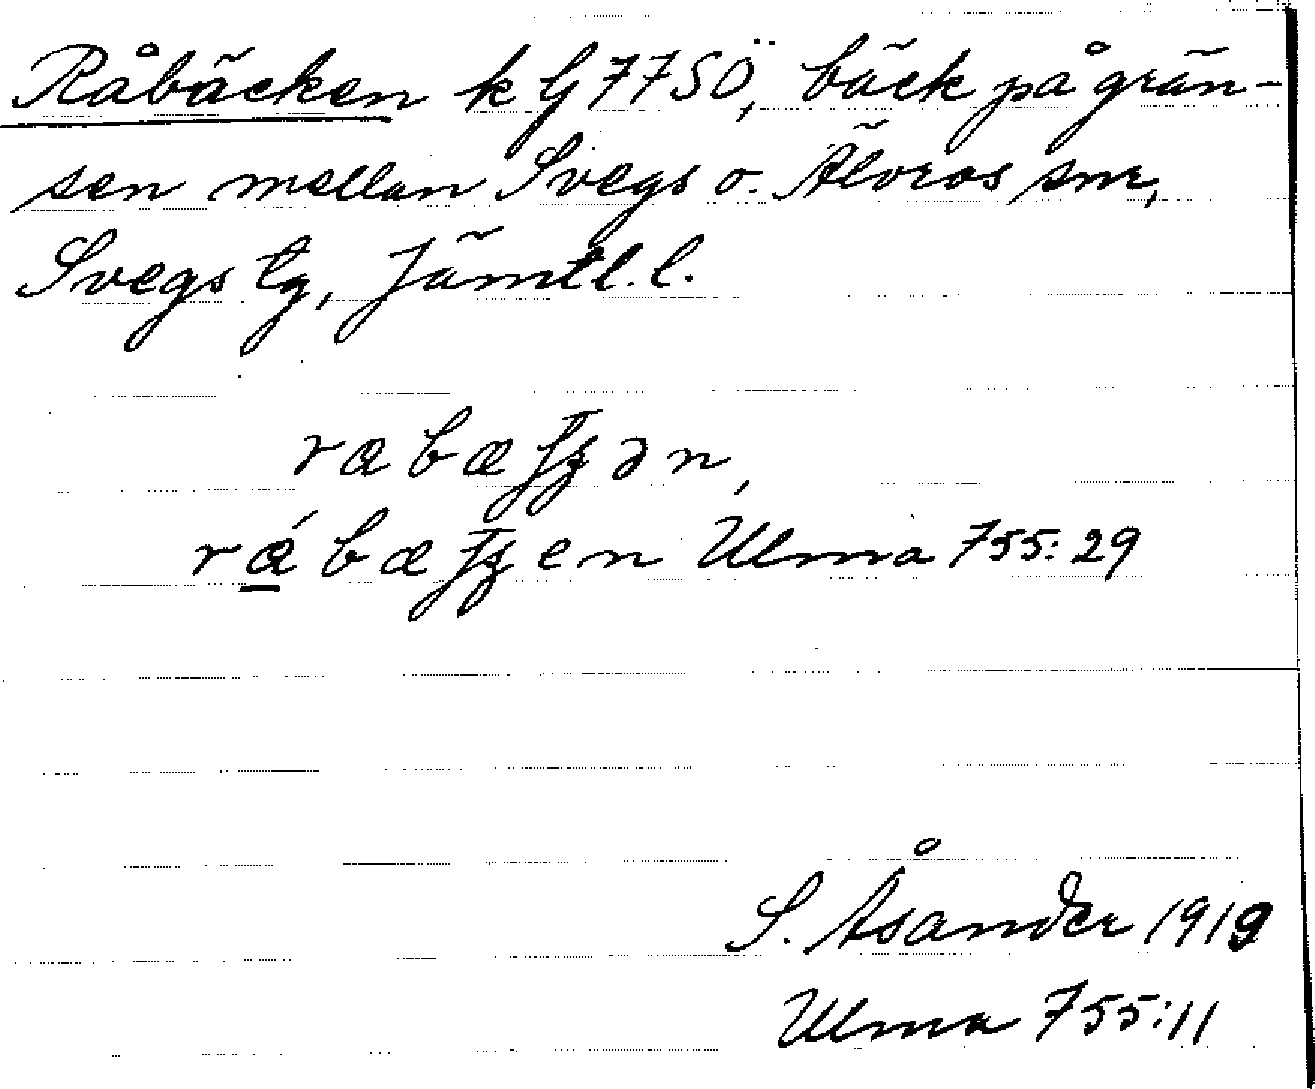 Råbäcken k G 77 SÖ, bäck på grän-
sen mellan Svegs o. Älvros snr,
Svegs tg, Jämtl. l.
Ulma 755:29
S. Åsander 1919
Ulma 755:11